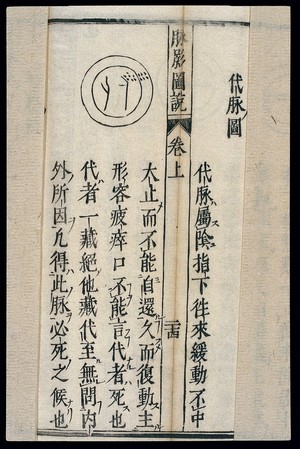 代脉圖
代脉屬陰指下徃來緩動不中
脉影圖說 卷上
太止而不能自還久而復動主
形容疲瘁口不能言代者死也
代者一藏絕他藏代至無問内
外所因凡得此脉必死之候也